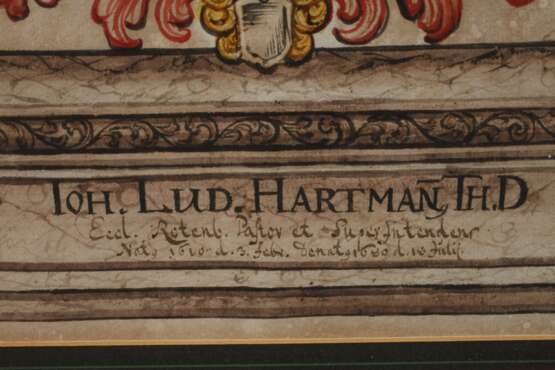 IOH. LUD. HARTMAÑ, TH.D
Eccl. Rotenb. Pastor et SuperIntendens
Natq 1640 d. 3. Febr. Denatq 1680 d. 18 Julij.